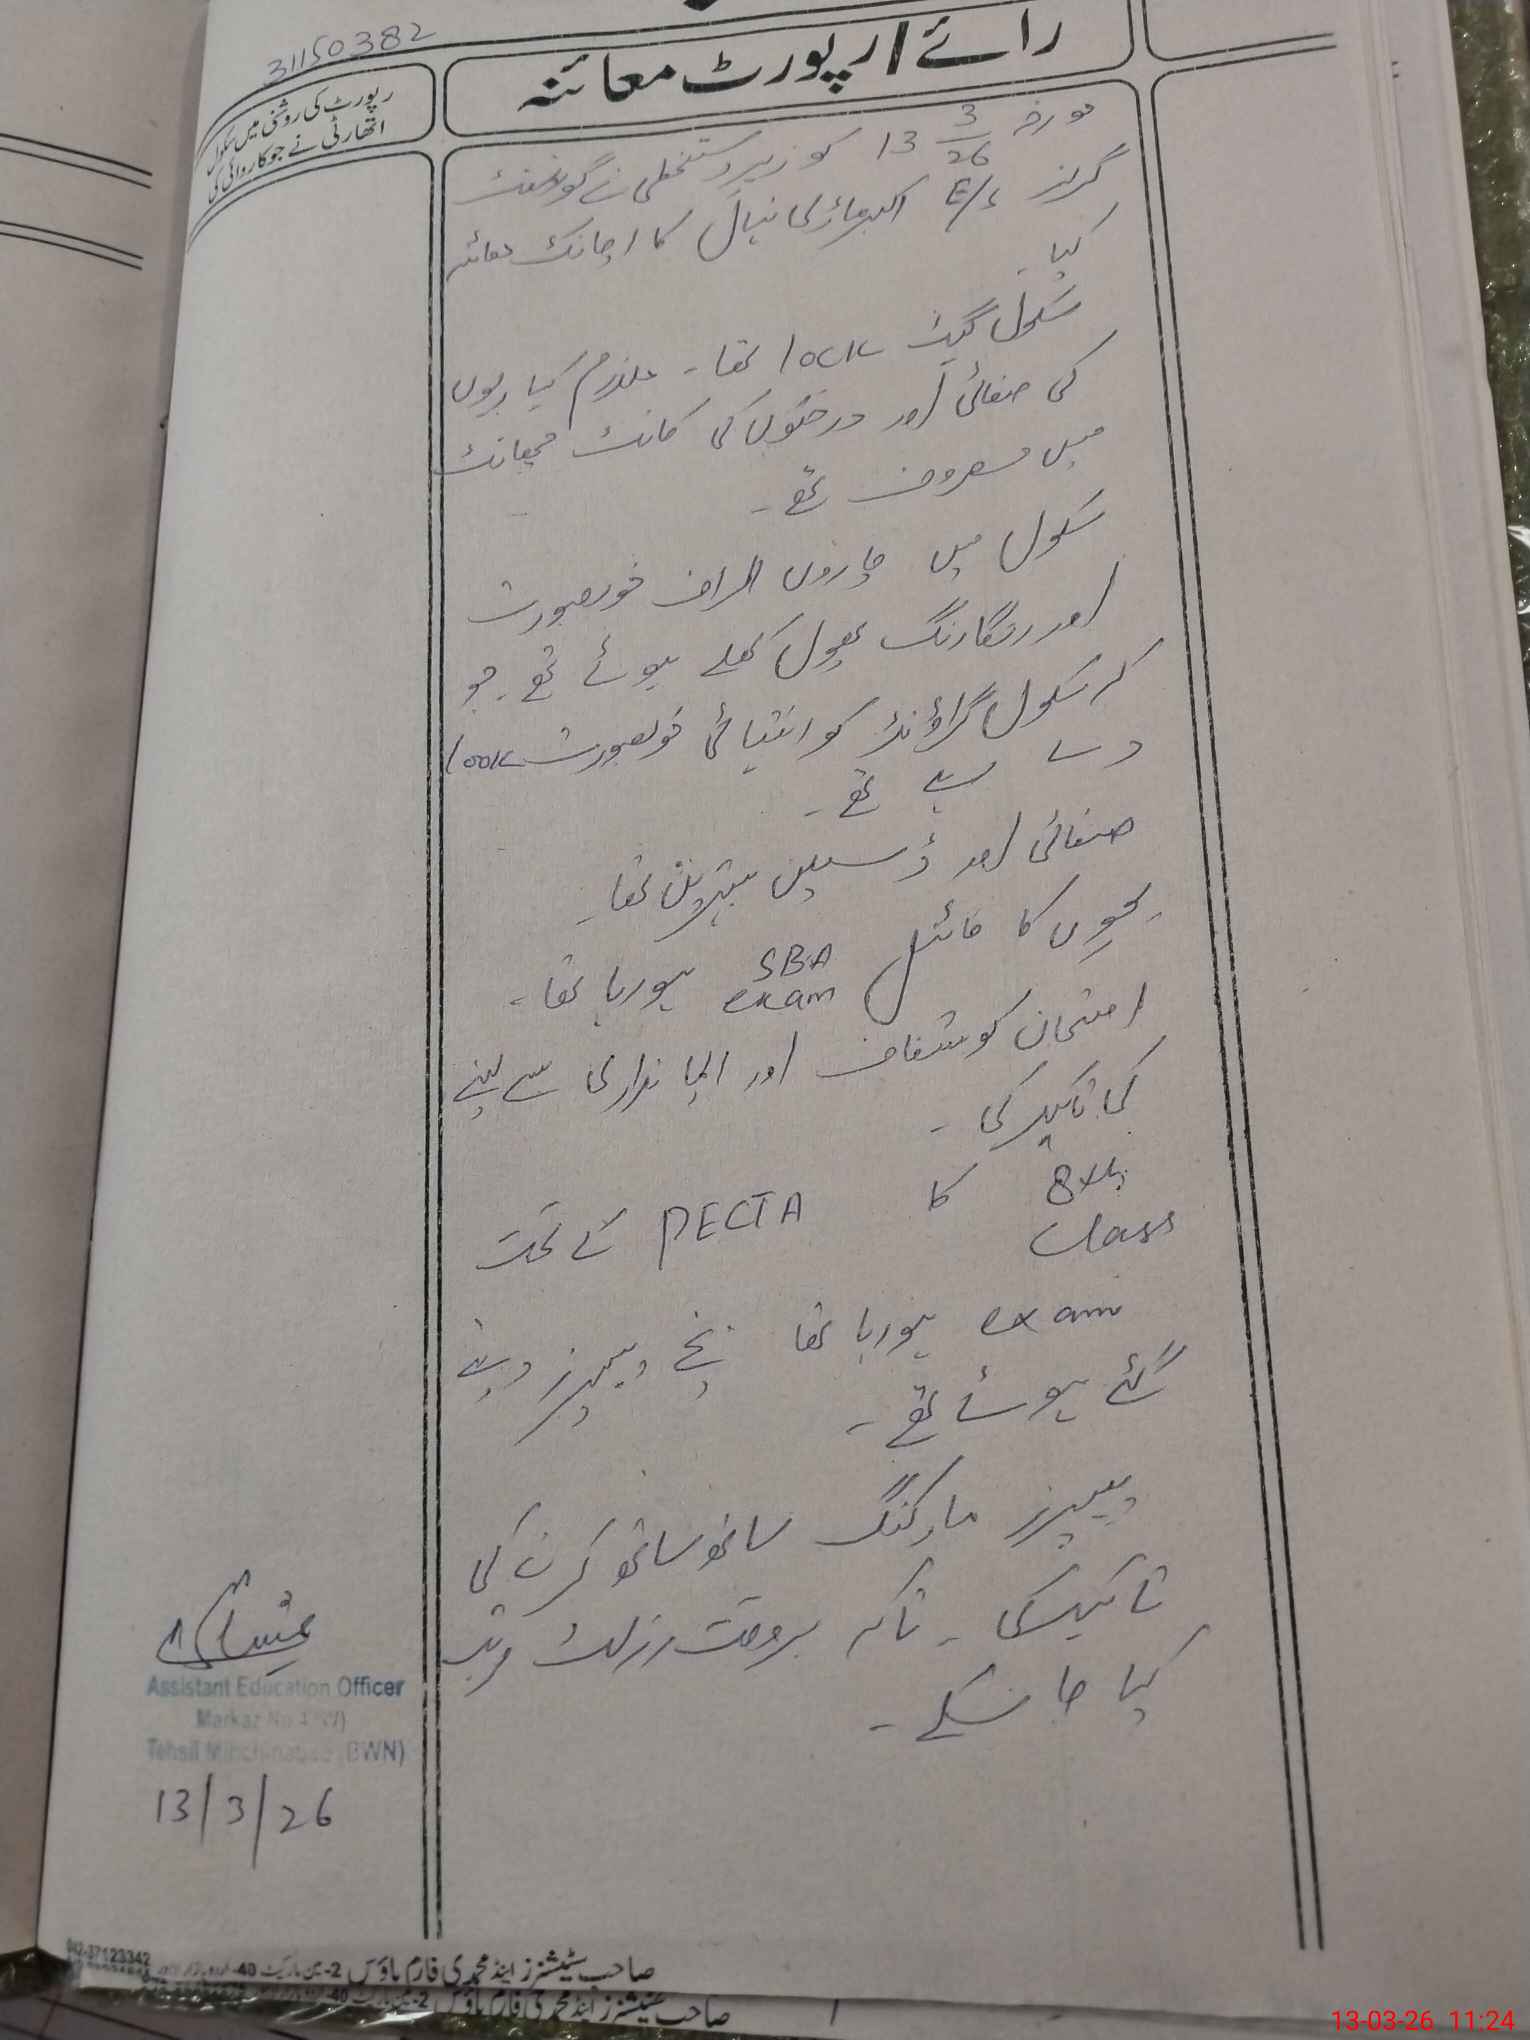 31150382
رائے / رپورٹ معائنہ
رپورٹ کی روشنی میں سکول
اتھارٹی نے جو کاروائی کی
مورخہ 13 3/26 کو زیر دستخطی نے گورنمنٹ
گرلز E/S اکبر کا اچانک معائنہ
کیا۔
سکول گیٹ lock تھا۔ ملازم کیاریوں
کی صفائی اور درختوں کی کانٹ چھانٹ
میں مصروف تھے۔
سکول میں چاروں اطراف خوبصورت
اور رنگا رنگ پھول کھلے ہوئے تھے۔ جو
کہ سکول گراؤنڈ کو انتہائی خوبصورت look
دے رہے تھے۔
صفائی اور ڈسپلن بہترین تھا۔
بچوں کا فائنل SBA exam ہو رہا تھا۔
امتحان کو شفاف اور ایمانداری سے لینے
کی تاکید کی۔
8th class کا PECTA کے تحت
exam ہو رہا تھا بچے پیپرز دینے
گئے ہوئے تھے۔
پیپرز مارکنگ ساتھ ساتھ کرنے کی
تاکید کی۔ تاکہ بروقت رزلٹ مرتب
کیا جا سکے۔
Assistant Education Officer
Markaz No
Tehsil Minchinabad (BWN)
13/3/26
042-37123342
صاحب سٹیشنرز اینڈ محمدی فارم ہاؤس 2-مین مارکیٹ 40-اردو بازار لاہور
صاحب سٹیشنرز اینڈ محمدی فارم ہاؤس 2-مین مارکیٹ 40-
13-03-26 11:24